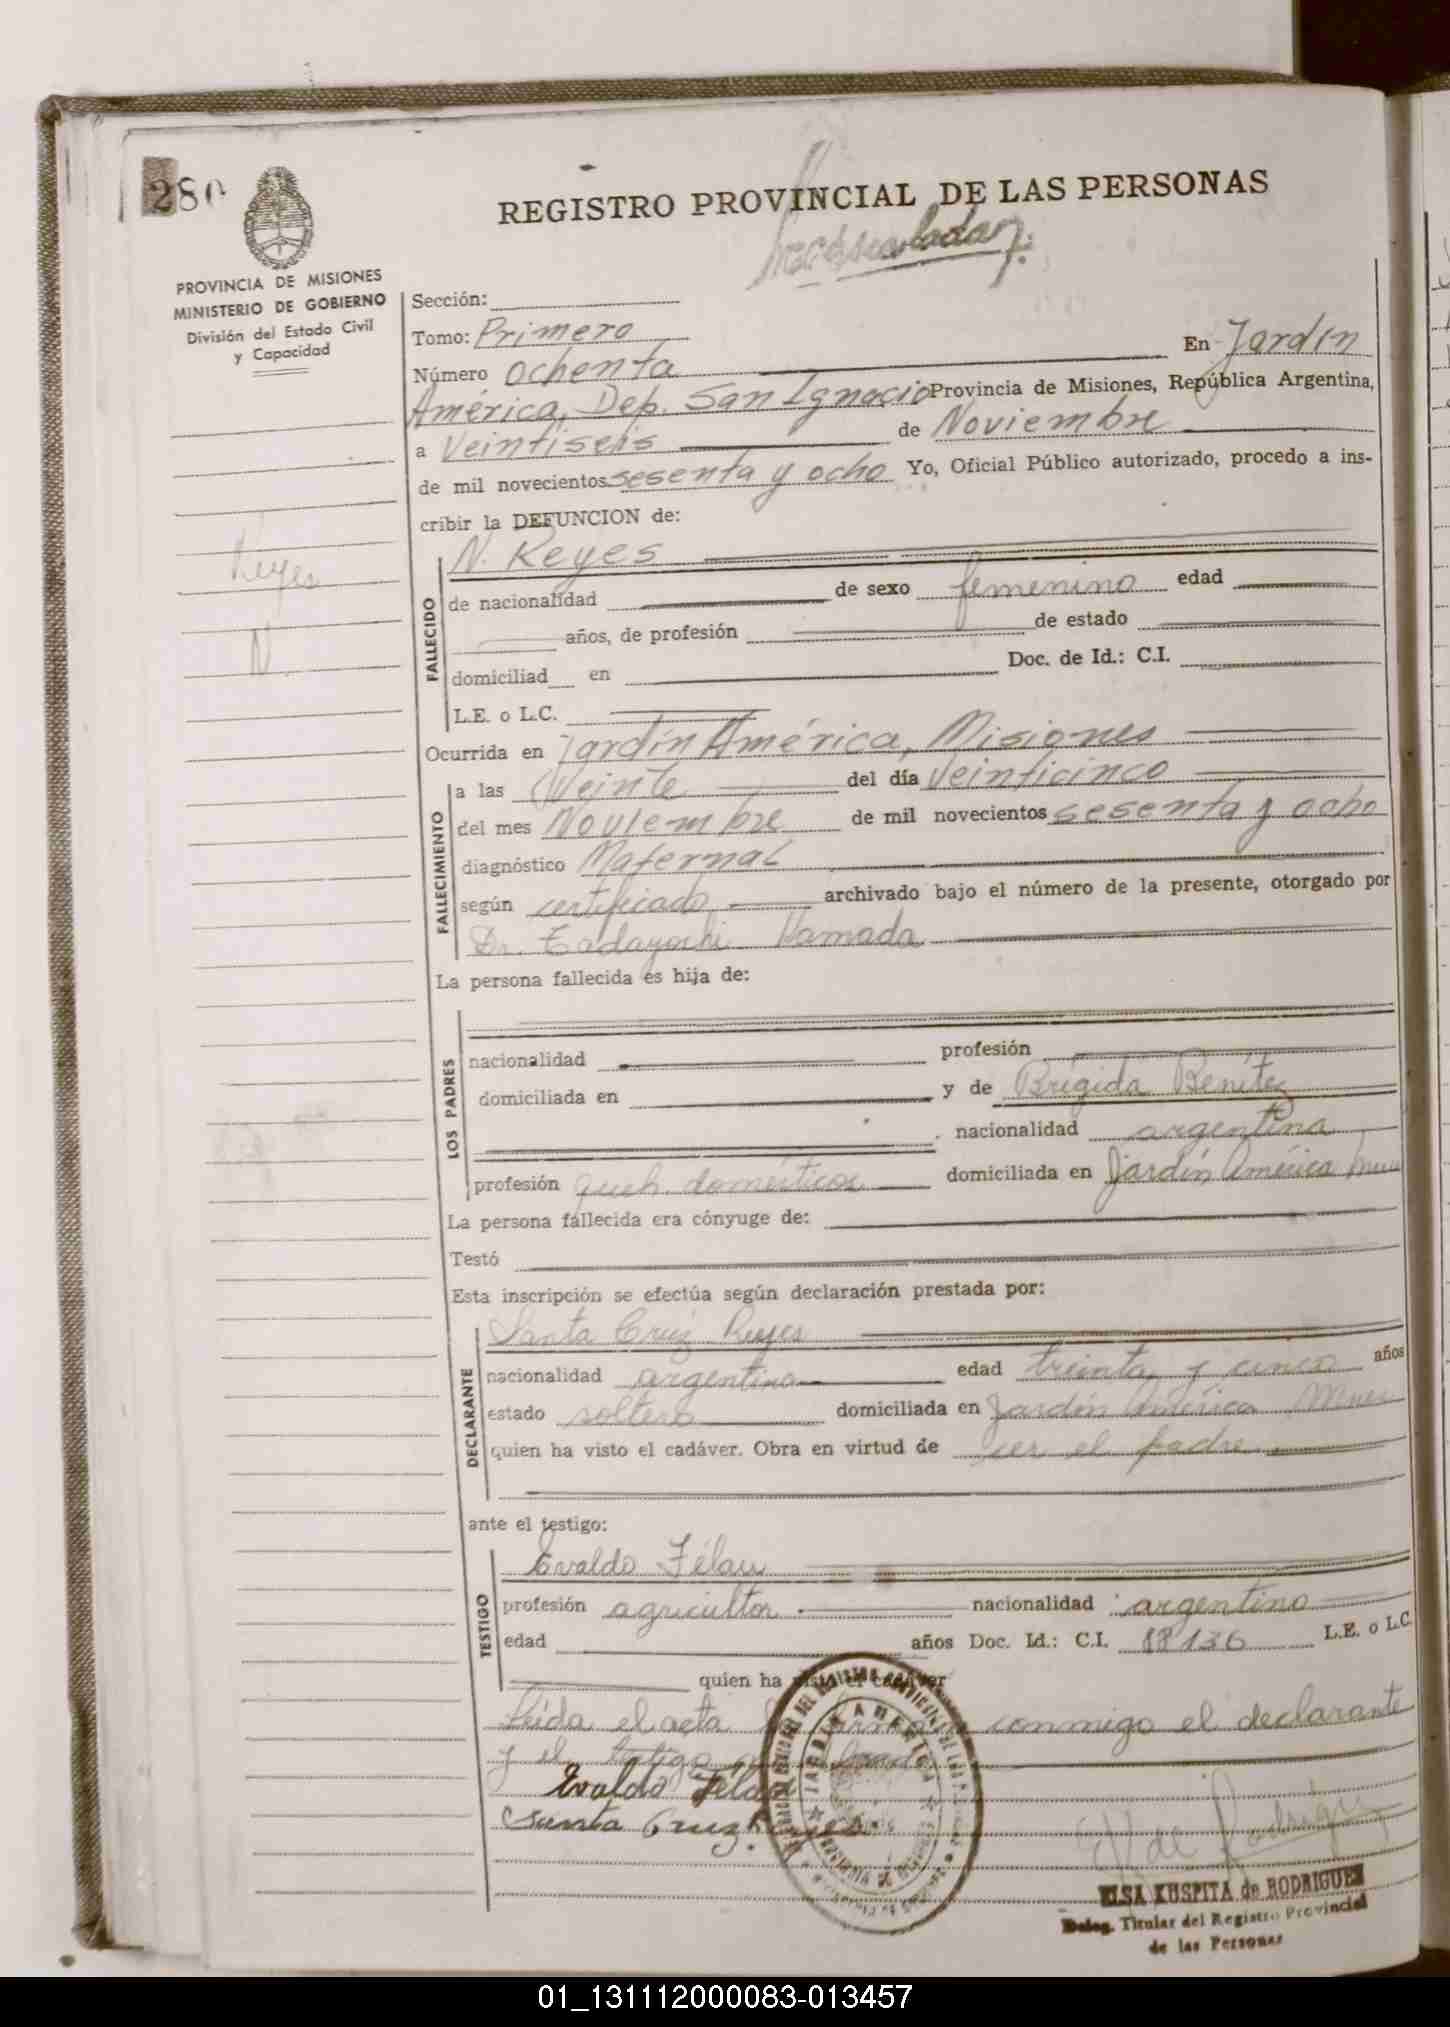 280
REGISTRO PROVINCIAL DE LAS PERSONAS
PROVINCIA DE MISIONES
MINISTERIO DE GOBIERNO
División del Estado Civil
y Capacidad
Sección:
Tomo: Primero
Número ochenta En Jardín
América, Dep. San Ignacio Provincia de Misiones, República Argentina,
a Veintiseis de Noviembre
de mil novecientos sesenta y ocho Yo, Oficial Público autorizado, procedo a ins-
cribir la DEFUNCION de:
Reyes
N.
FALLECIDO
N. Reyes
de nacionalidad de sexo femenino edad
años, de profesión de estado
domiciliad en Doc. de Id.: C.I.
L.E. o L.C.
Ocurrida en Jardín América, Misiones
FALLECIMIENTO
a las Veinte del día Veinticinco
del mes Noviembre de mil novecientos sesenta y ocho
diagnóstico Maternal
según certificado archivado bajo el número de la presente, otorgado por
Dr. Tadayochi Hamada
La persona fallecida es hija de:
LOS PADRES
nacionalidad profesión
domiciliada en y de Brígida Benítez
nacionalidad argentina
profesión queh. domésticos domiciliada en Jardín América
La persona fallecida era cónyuge de:
Testó
Esta inscripción se efectúa según declaración prestada por:
DECLARANTE
Santa Cruz Reyes
nacionalidad argentino edad treinta y cinco años
estado soltero domiciliada en Jardín América Mnes
quien ha visto el cadáver. Obra en virtud de ser el padre
ante el testigo:
TESTIGO
Evaldo Félau
profesión agricultor nacionalidad argentino
edad años Doc. Id.: C.I. 18136 L.E. o L.C.
quien ha visto el cadáver
Leída el acta la firman conmigo el declarante
y el testigo
Evaldo Felau
Santa Cruz Reyes
JARDIN AMERICA
de Rodríguez
ELSA KUSPITA de RODRIGUEZ
Deleg. Titular del Registro Provincial
de las Personas
01_131112000083-013457